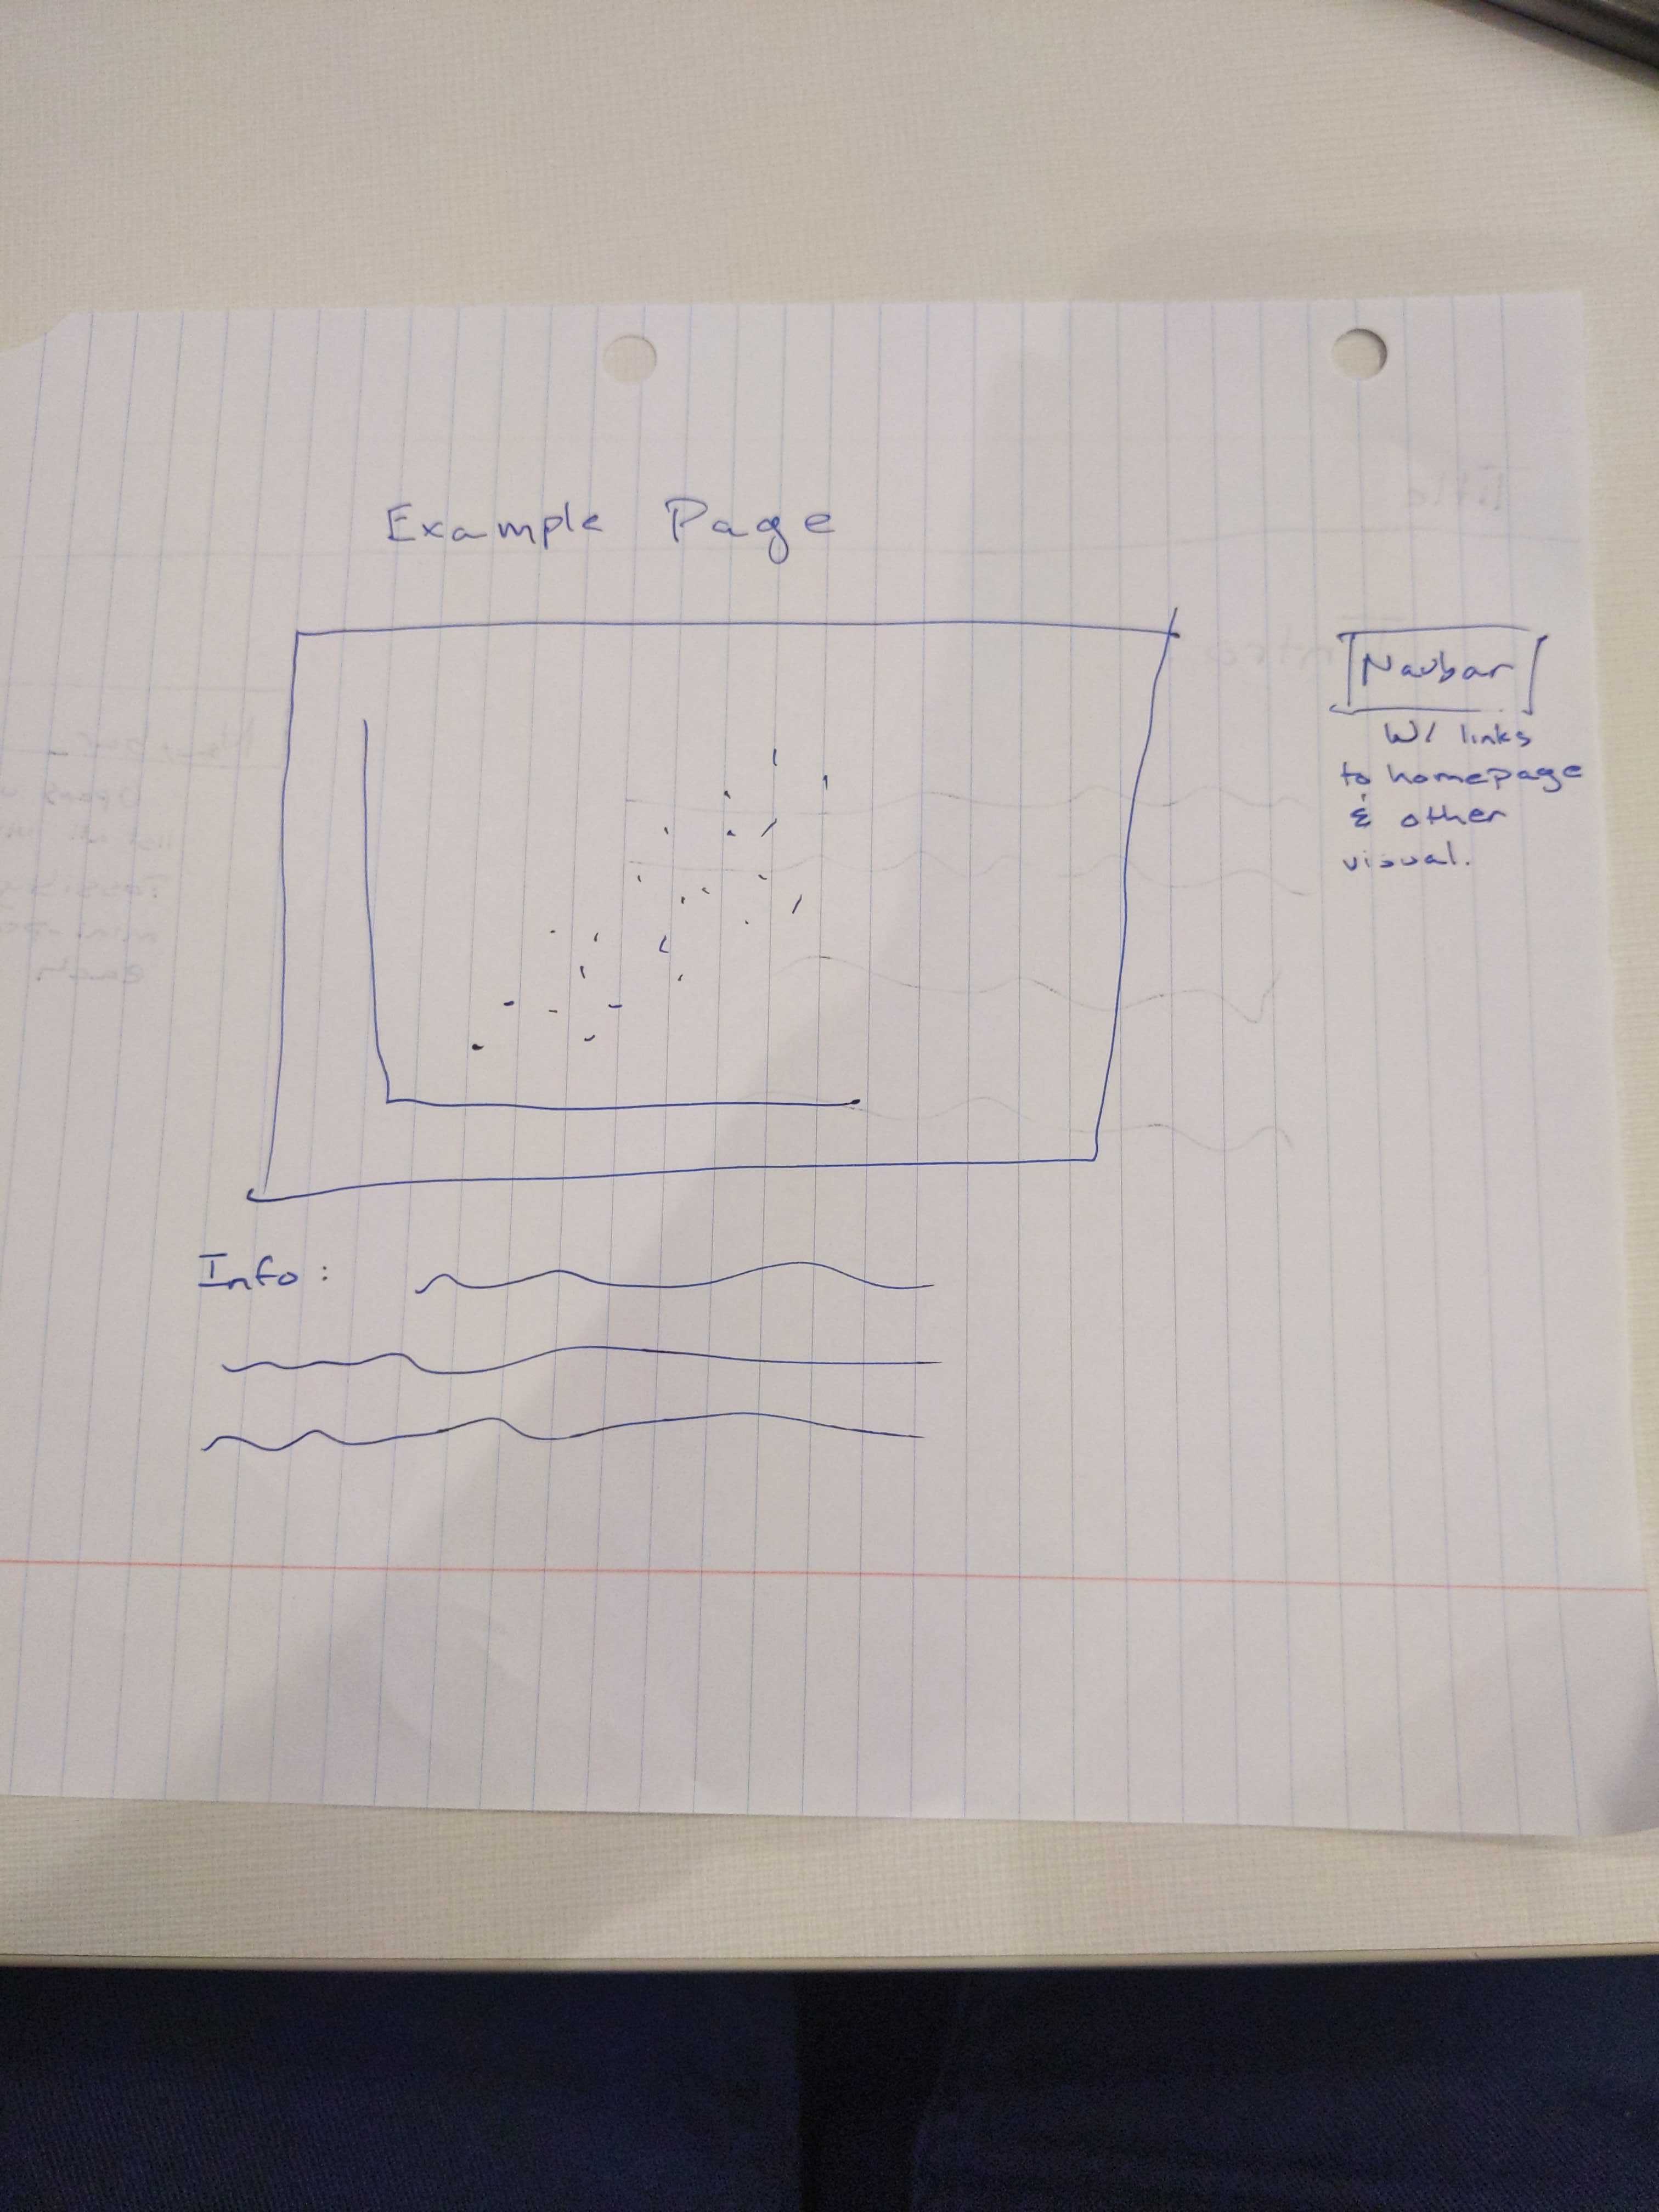 Example Page
Navbar
w/ links
to homepage
& other
visual.
Info: